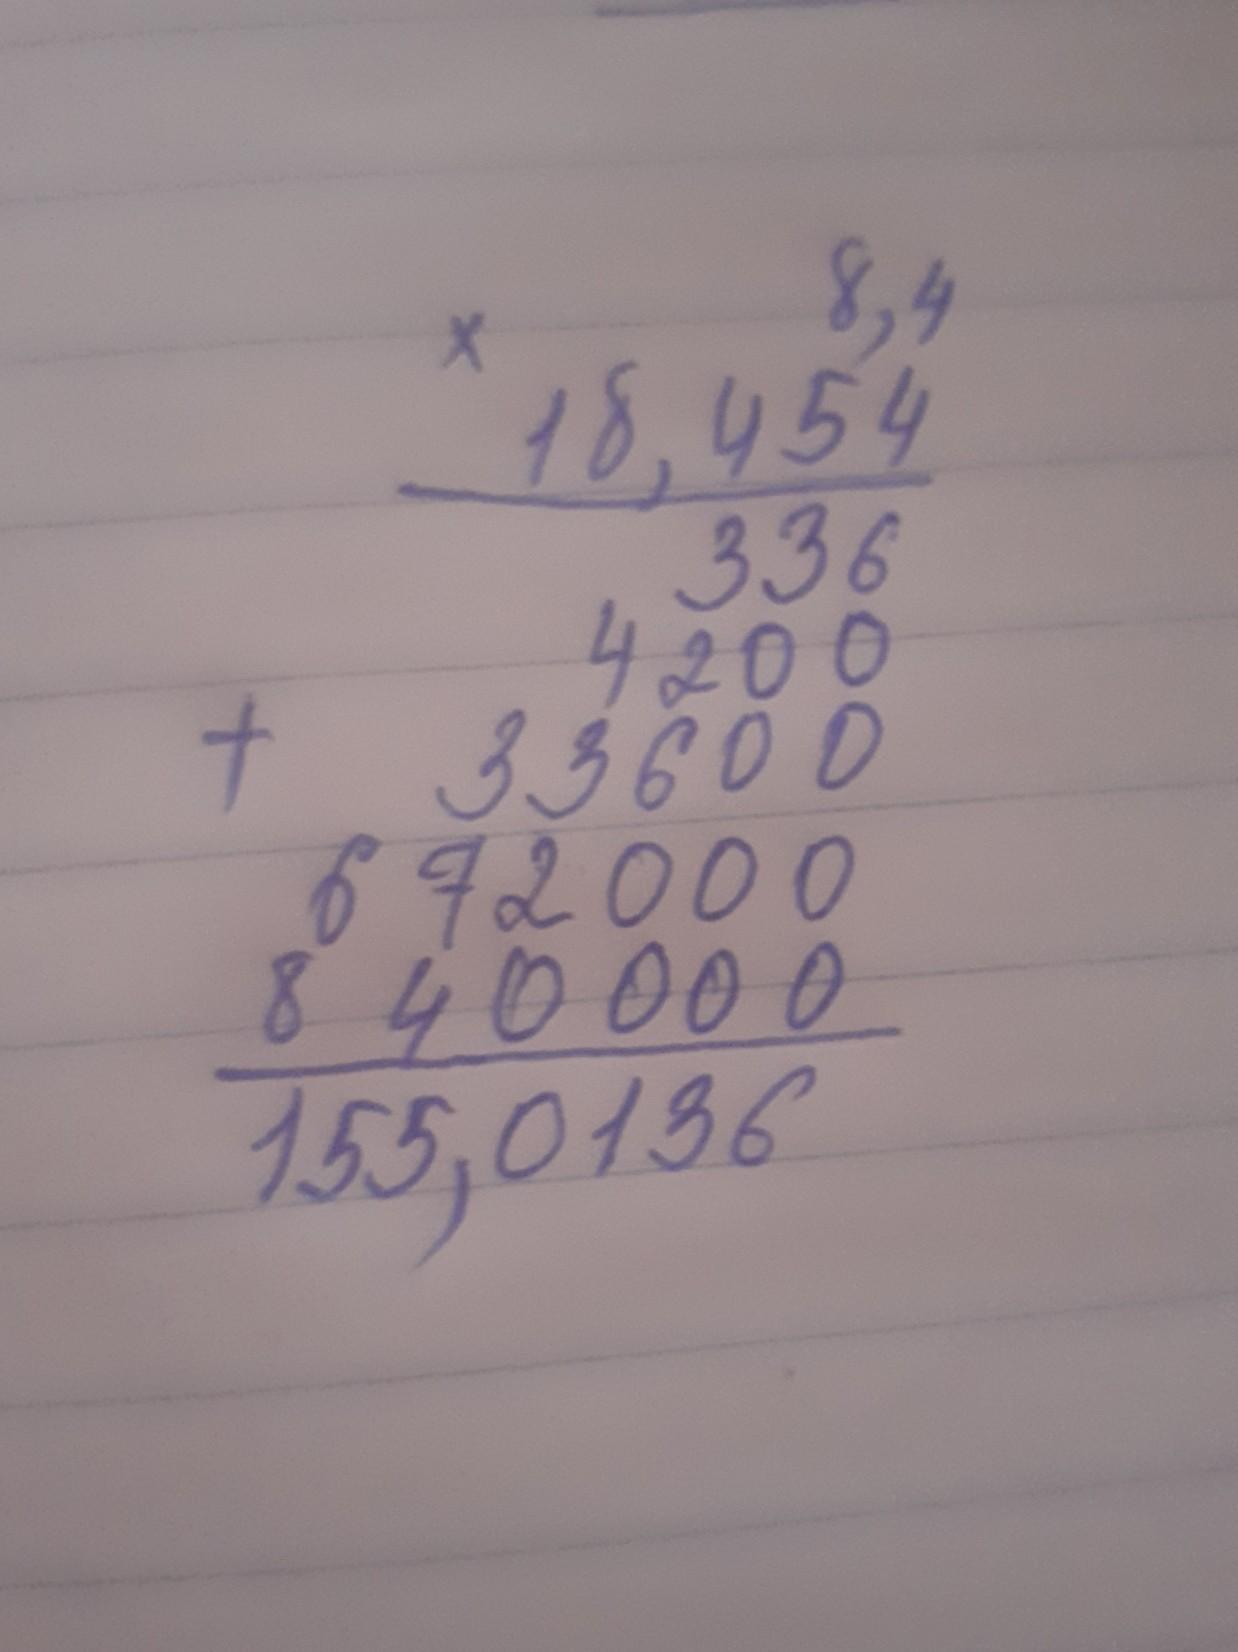 8,4
×
18,454
336
4200
+ 33600
672000
840000
155,0136